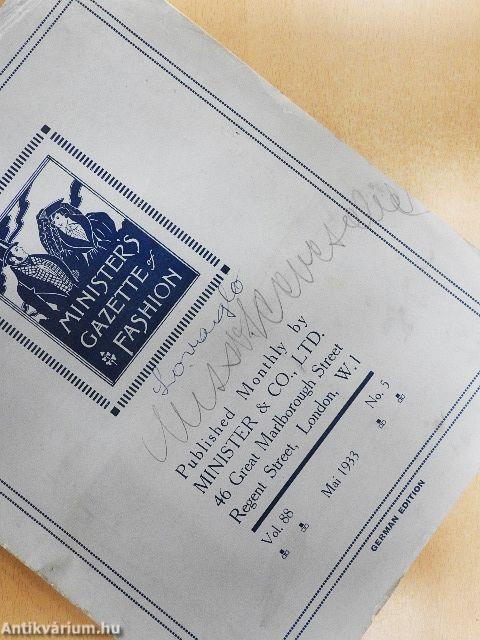 MINISTER'S
GAZETTE of
FASHION
Lovagló
Published Monthly by
MINISTER & CO., LTD.
46 Great Marlborough Street
Regent Street, London, W.1
Vol. 88 Mai 1933 No. 5
GERMAN EDITION
Antikvárium.hu